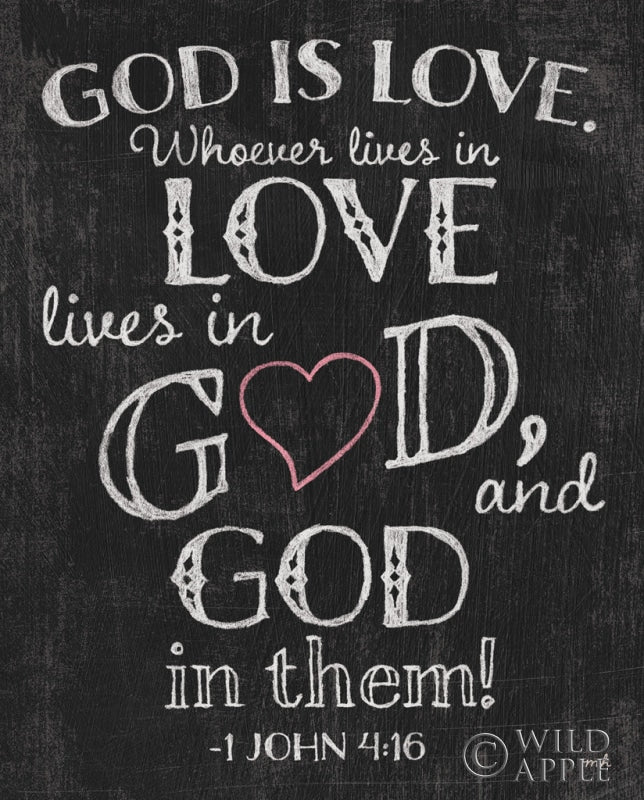 GOD IS LOVE.
Whoever lives in
LOVE
lives in
GOD,
and
GOD
in them!
-1 JOHN 4:16
© WILD
APPLE
mh